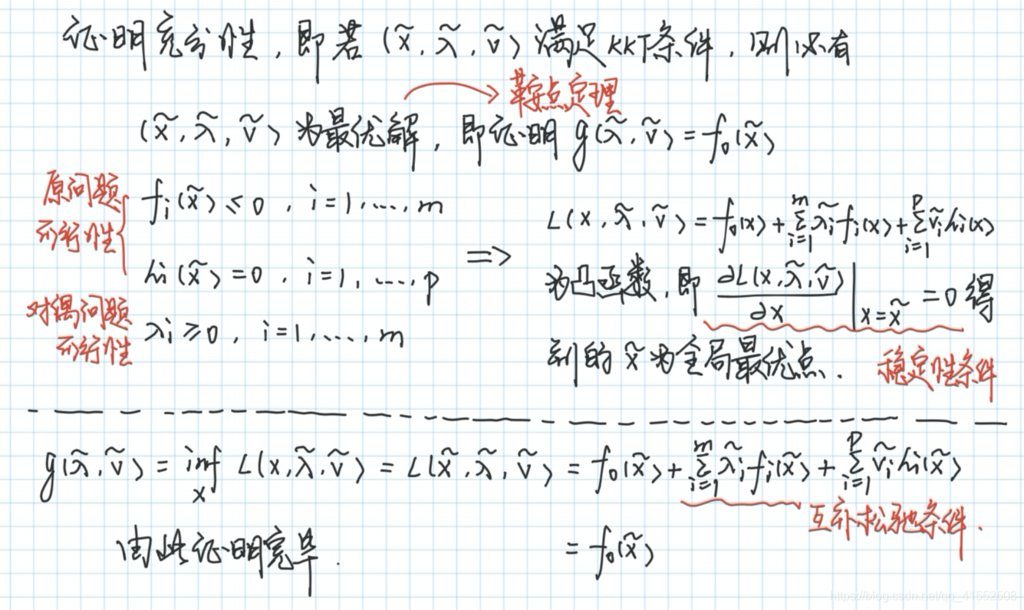 证明充分性，即若 (x̃, λ̃, ṽ) 满足KKT条件，则必有
鞍点定理
(x̃, λ̃, ṽ) 为最优解，即证明 g(λ̃, ṽ) = f₀(x̃)
原问题
可行性
fᵢ(x̃) ≤ 0 , i=1,...,m
hᵢ(x̃) = 0 , i=1,...,p
对偶问题
可行性
λᵢ ≥ 0 , i=1,...,m
⇒
L(x, λ̃, ṽ) = f₀(x) + ∑_{i=1}^{m} λ̃ᵢ fᵢ(x) + ∑_{i=1}^{p} ṽᵢ hᵢ(x)
为凸函数，即 ∂L(x, λ̃, ṽ)/∂x |_{x=x̃} = 0 得
到的 x̃ 为全局最优点.
稳定性条件
g(λ̃, ṽ) = inf_x L(x, λ̃, ṽ) = L(x̃, λ̃, ṽ) = f₀(x̃) + ∑_{i=1}^{m} λ̃ᵢ fᵢ(x̃) + ∑_{i=1}^{p} ṽᵢ hᵢ(x̃)
互补松弛条件.
由此证明完毕.
= f₀(x̃)
https://blog.csdn.net/qq_41552508